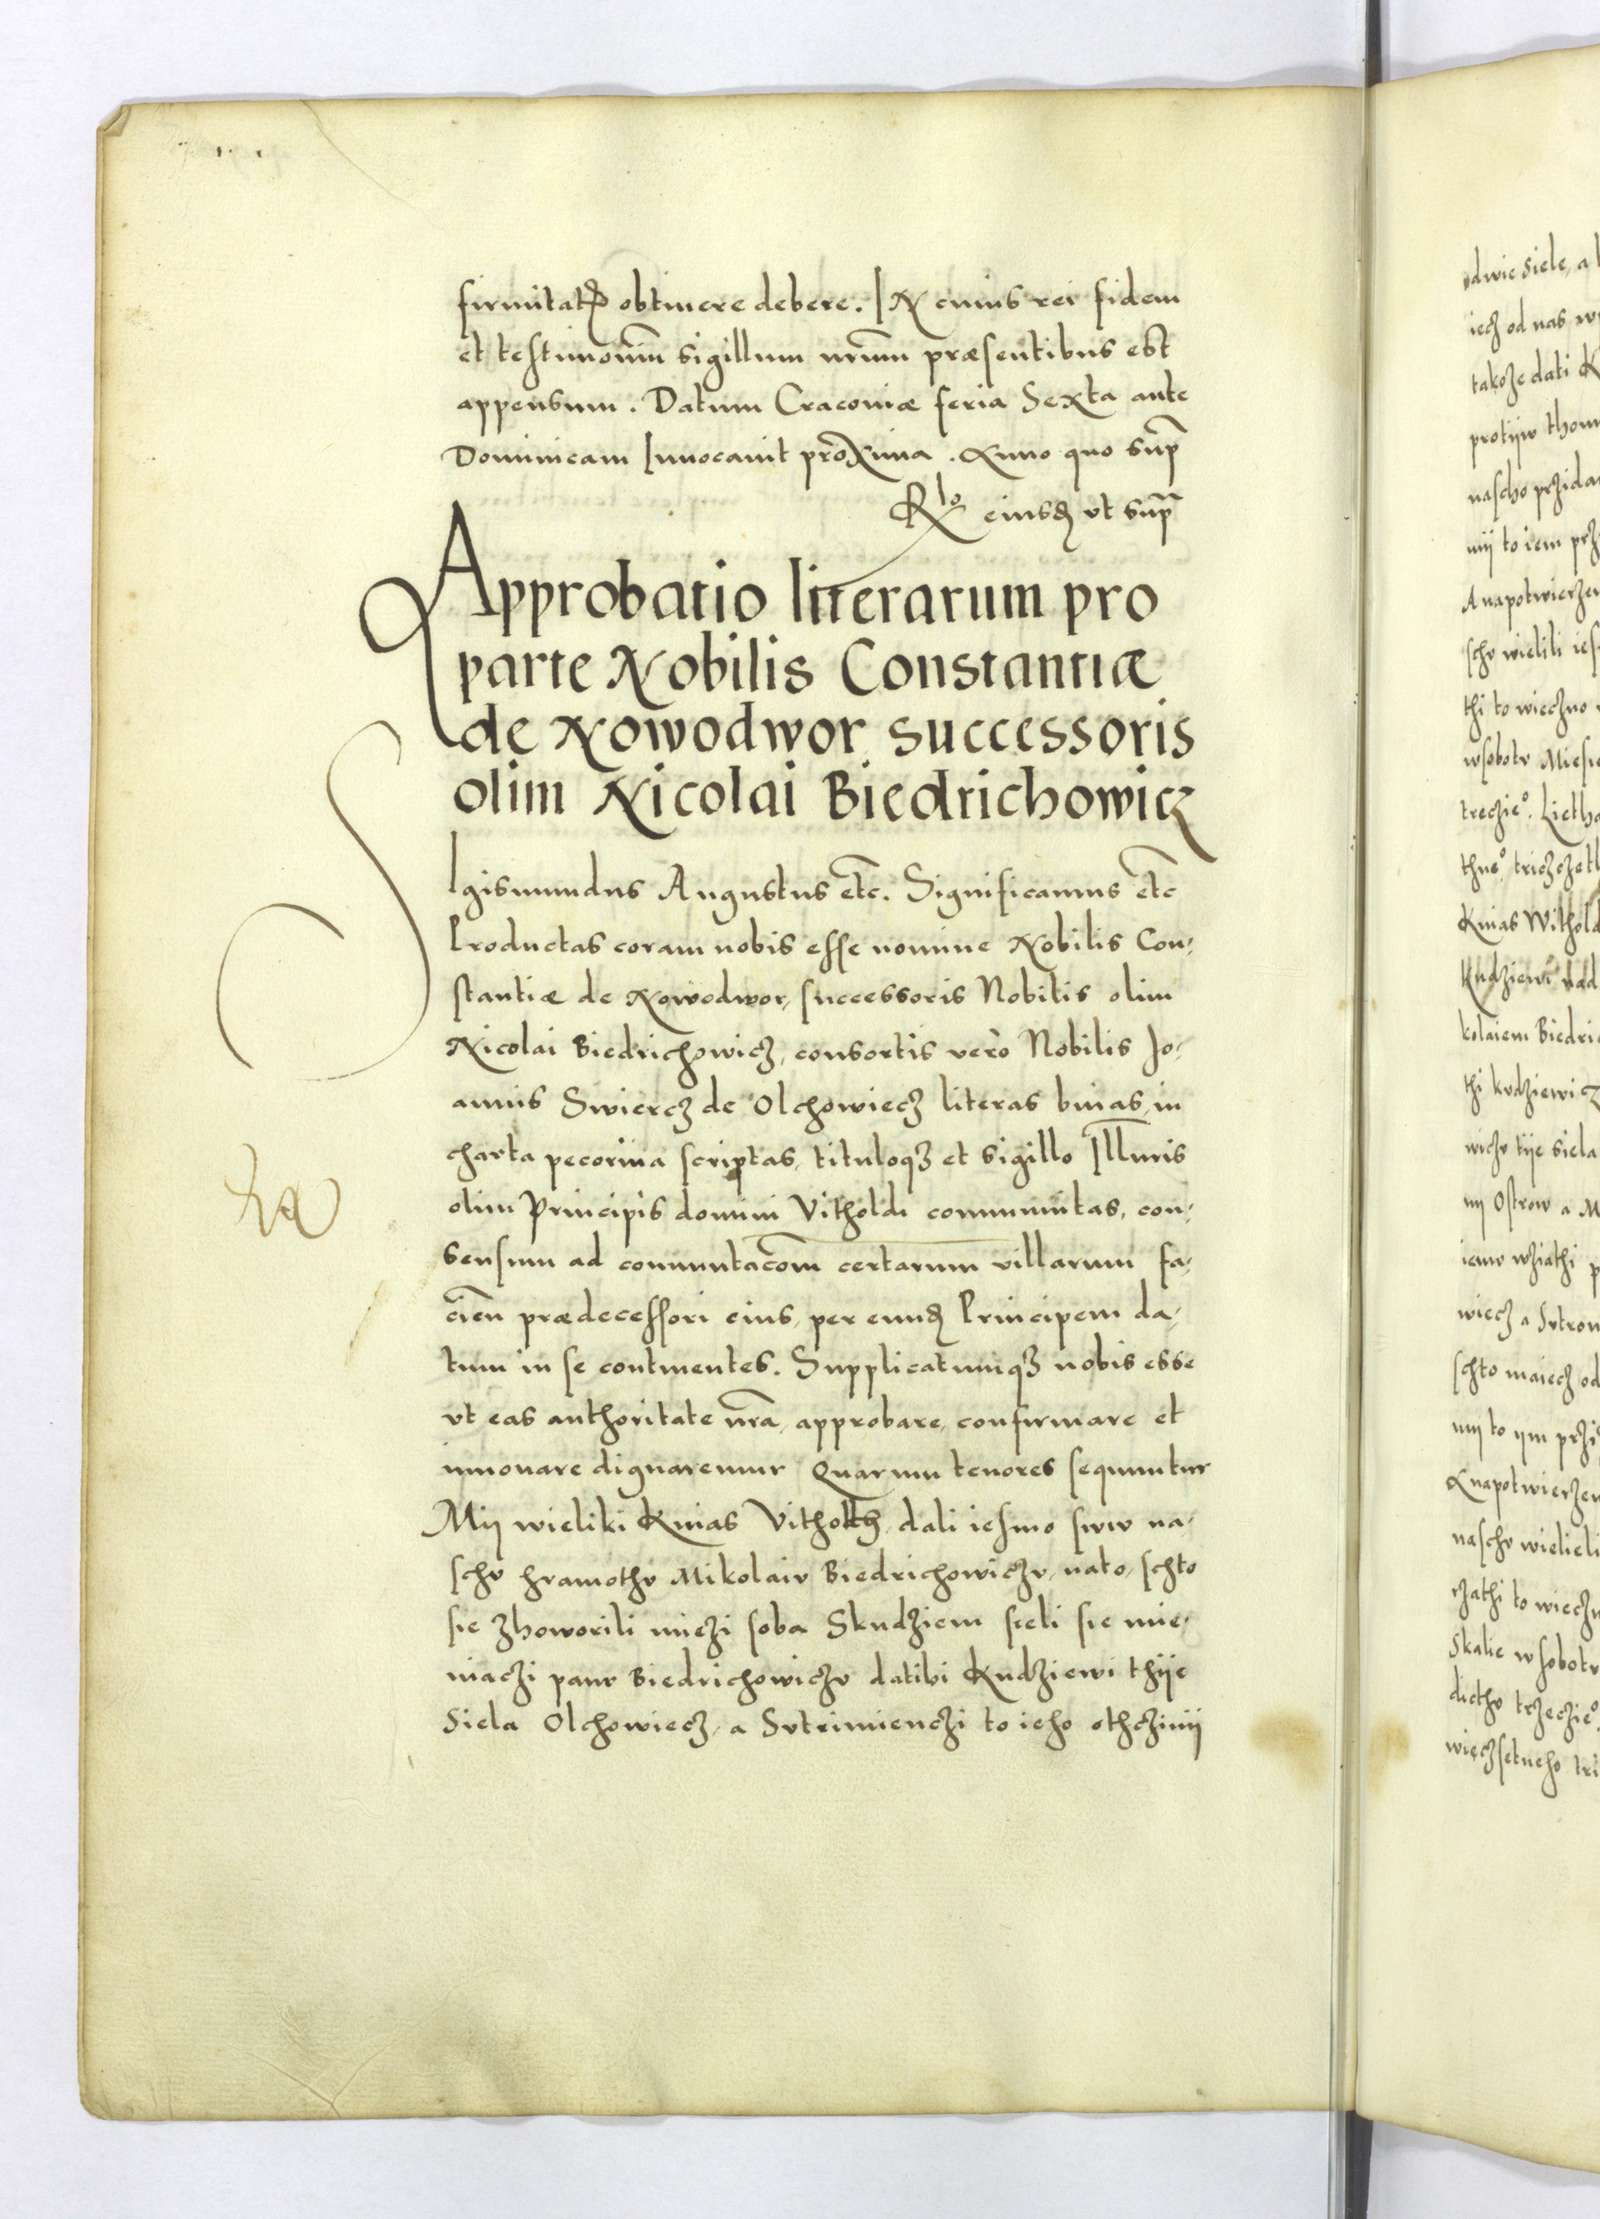 firmitatē obtinere debere. IN cuius rei fidem
et testimoniū sigillum nr̄um præsentibus est
appensum. Datum Cracoviæ feria Sexta ante
Dominicam Invocavit proxima. Anno quo sup̄
Rlo eiusdē vt sup̄
Approbatio litterarum pro
parte Nobilis Constantiæ
de Nowodwor successoris
olim Nicolai Biedrichowicz
SIgismundus Augustus etc. Significamus etc
Productas coram nobis esse nomine Nobilis Con-
stantiæ de Nowodwor, successoris Nobilis olim
Nicolai Biedrichowicz, consortis verò Nobilis Jo-
annis Swiercz de Olchowiecz literas binas, in
charta pecorina scriptas, tituloqȝ et sigillo Ill̄uris
olim Principis domini Vitholdi communitas, con-
sensum ad commutacōm certarum villarum fa-
cīen prædecessori eius, per eundē Principem da-
tum in se continentes. Supplicatumqȝ nobis esse
vt eas authoritate nr̄a, approbare, confirmare et
innovare dignaremur Quarum tenores sequuntur
Mij wieliki Knias Vitholth, dali iesmo sww na-
schv hramothv Mikolaiv Biedrichowiczv, nato, schto
sie zhoworili miezi soba Skudziem sieli sie mie-
niaczi panv Biedrichowiczv datibi Kudziewi thije
Siela Olchowiecz, a Svtrimienczi to ieho othczinij
odwie siele, a
iecz od nas
takoze dati
protijw
nascho
mij to iem
A napotwierzen
schv wielili
thi to wieczno
wsobotv
treczie°. Lietha
thne°. 
Knias Withold
Kudziewi nad
kolaiem Biedric
thi kvdziewicz
wiczv tije siela
nij Ostrow a M
iemv wziathi
wiecz a Svtrom
schto maiecz od
mij to ijm
A napotwierzen
naschv wielieli
rzathi to wieczn
Skalie wsobotv
diethv trzeczie°.